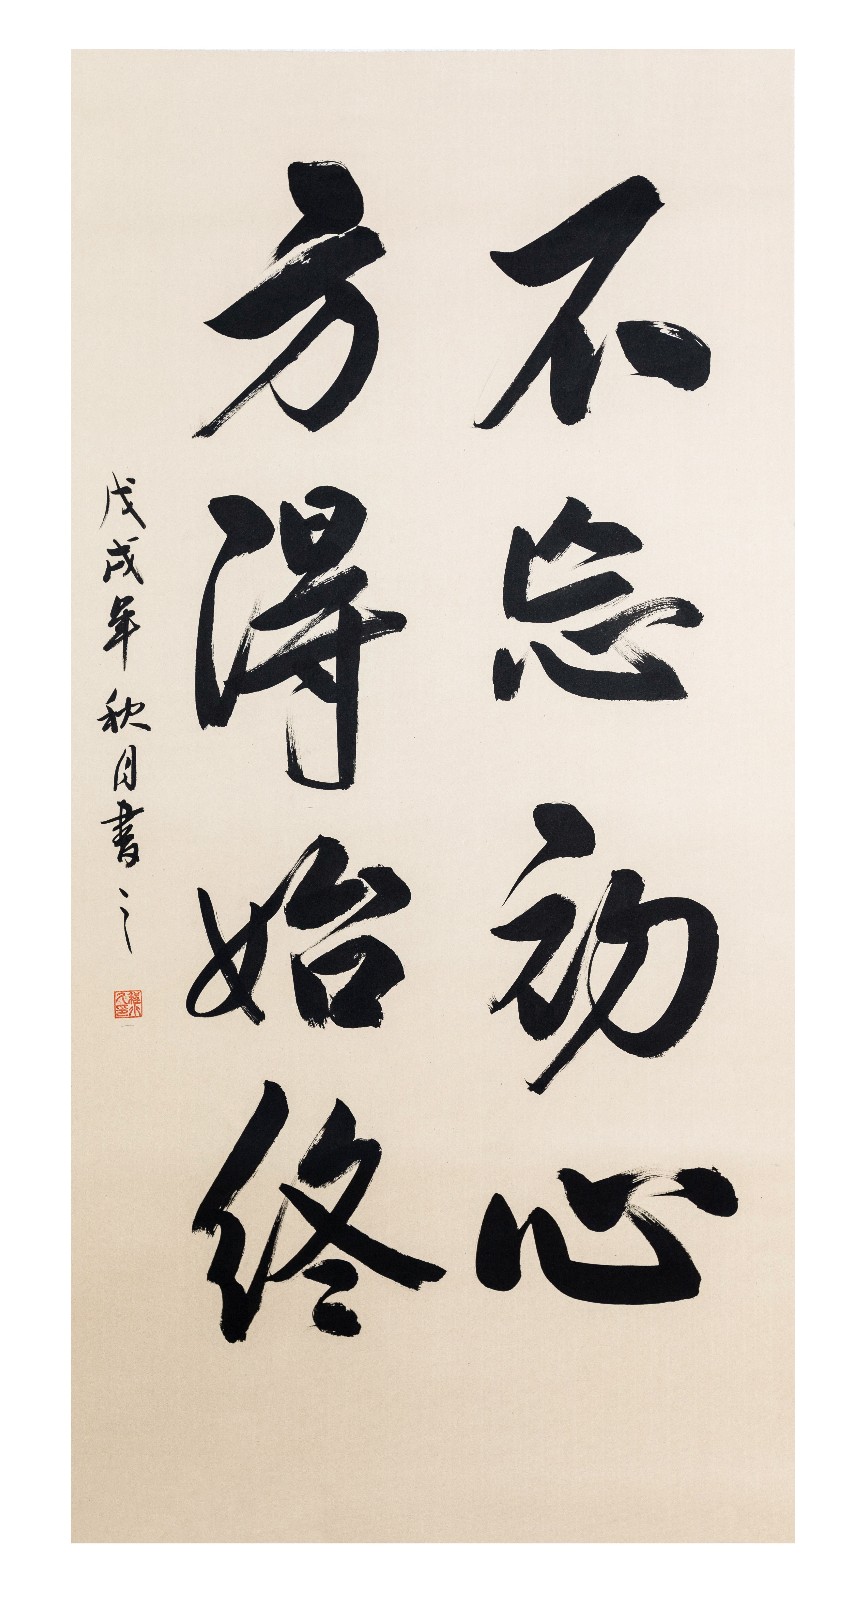 不忘初心
方得始终
戊戌年秋月書之